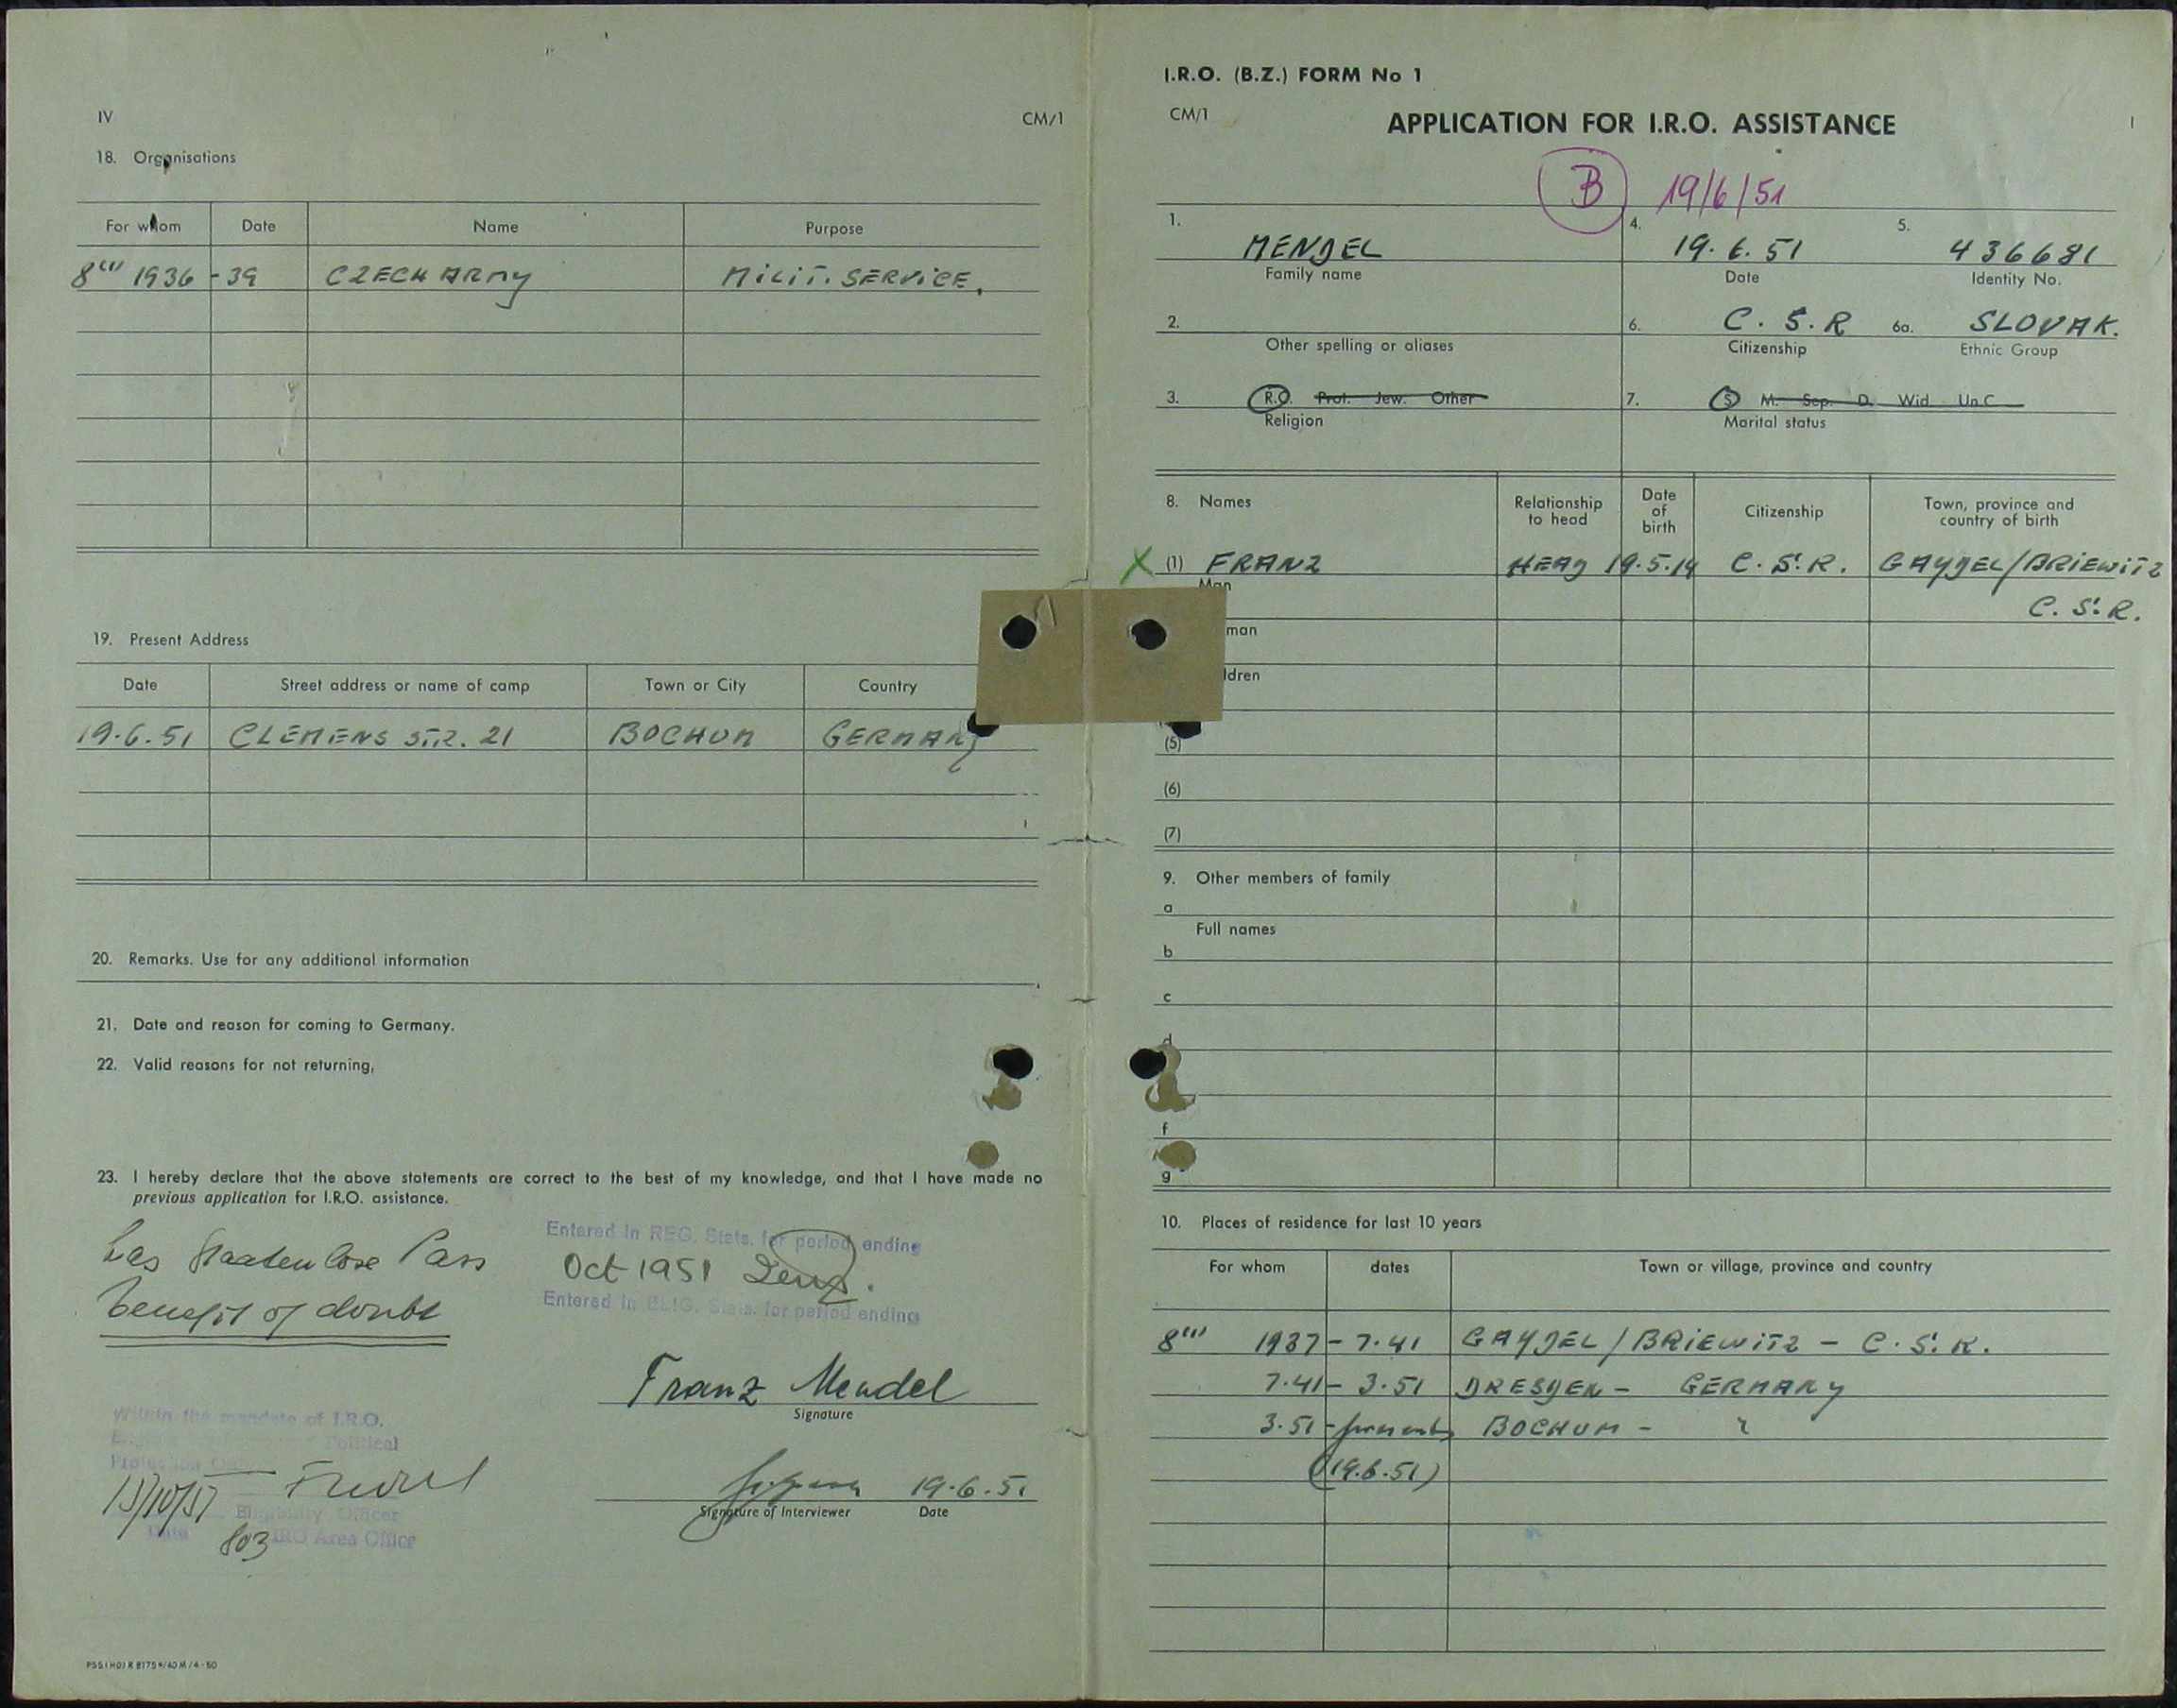 IV
CM/1
18. Organisations
For whom Date Name Purpose
8(1) 1936 - 39 CZECH ARMY MILIT. SERVICE.
19. Present Address
Date Street address or name of camp Town or City Country
19.6.51 CLEMENS STR. 21 BOCHUM GERMANY
20. Remarks. Use for any additional information
21. Date and reason for coming to Germany.
22. Valid reasons for not returning,
23. I hereby declare that the above statements are correct to the best of my knowledge, and that I have made no
previous application for I.R.O. assistance.
has Staatenlose Pass
benefit of doubt
Entered in REG. Stats. for period ending
Oct 1951
Entered in ELIG. Stats. for period ending
Franz Mendel
Signature
Within the mandate of I.R.O.
Political
Protection
Eligibility Officer
Date 803 IRO Area Office
19.6.51
Signature of Interviewer Date
I.R.O. (B.Z.) FORM No 1
CM/1
APPLICATION FOR I.R.O. ASSISTANCE
I
B 19/6/51
1. MENDEL
Family name
4. 19.6.51
Date
5. 436681
Identity No.
2.
Other spelling or aliases
6. C.S.R
Citizenship
6a. SLOVAK.
Ethnic Group
3. R.C. Prot. Jew. Other
Religion
7. S M. Sep. D. Wid Un.C
Marital status
8. Names Relationship to head Date of birth Citizenship Town, province and country of birth
X (1) FRANZ HEAD 19.5.14 C.S.R. GAYDEL/BRIEWITZ
Man
C.S.R.
man
ldren
(5)
(6)
(7)
9. Other members of family
a
Full names
b
c
d
f
g
10. Places of residence for last 10 years
For whom dates Town or village, province and country
8(1) 1937 - 7.41 GAYDEL/BRIEWITZ - C.S.R.
7.41 - 3.51 DRESDEN - GERMANY
3.51 - present BOCHUM - "
(19.6.51)